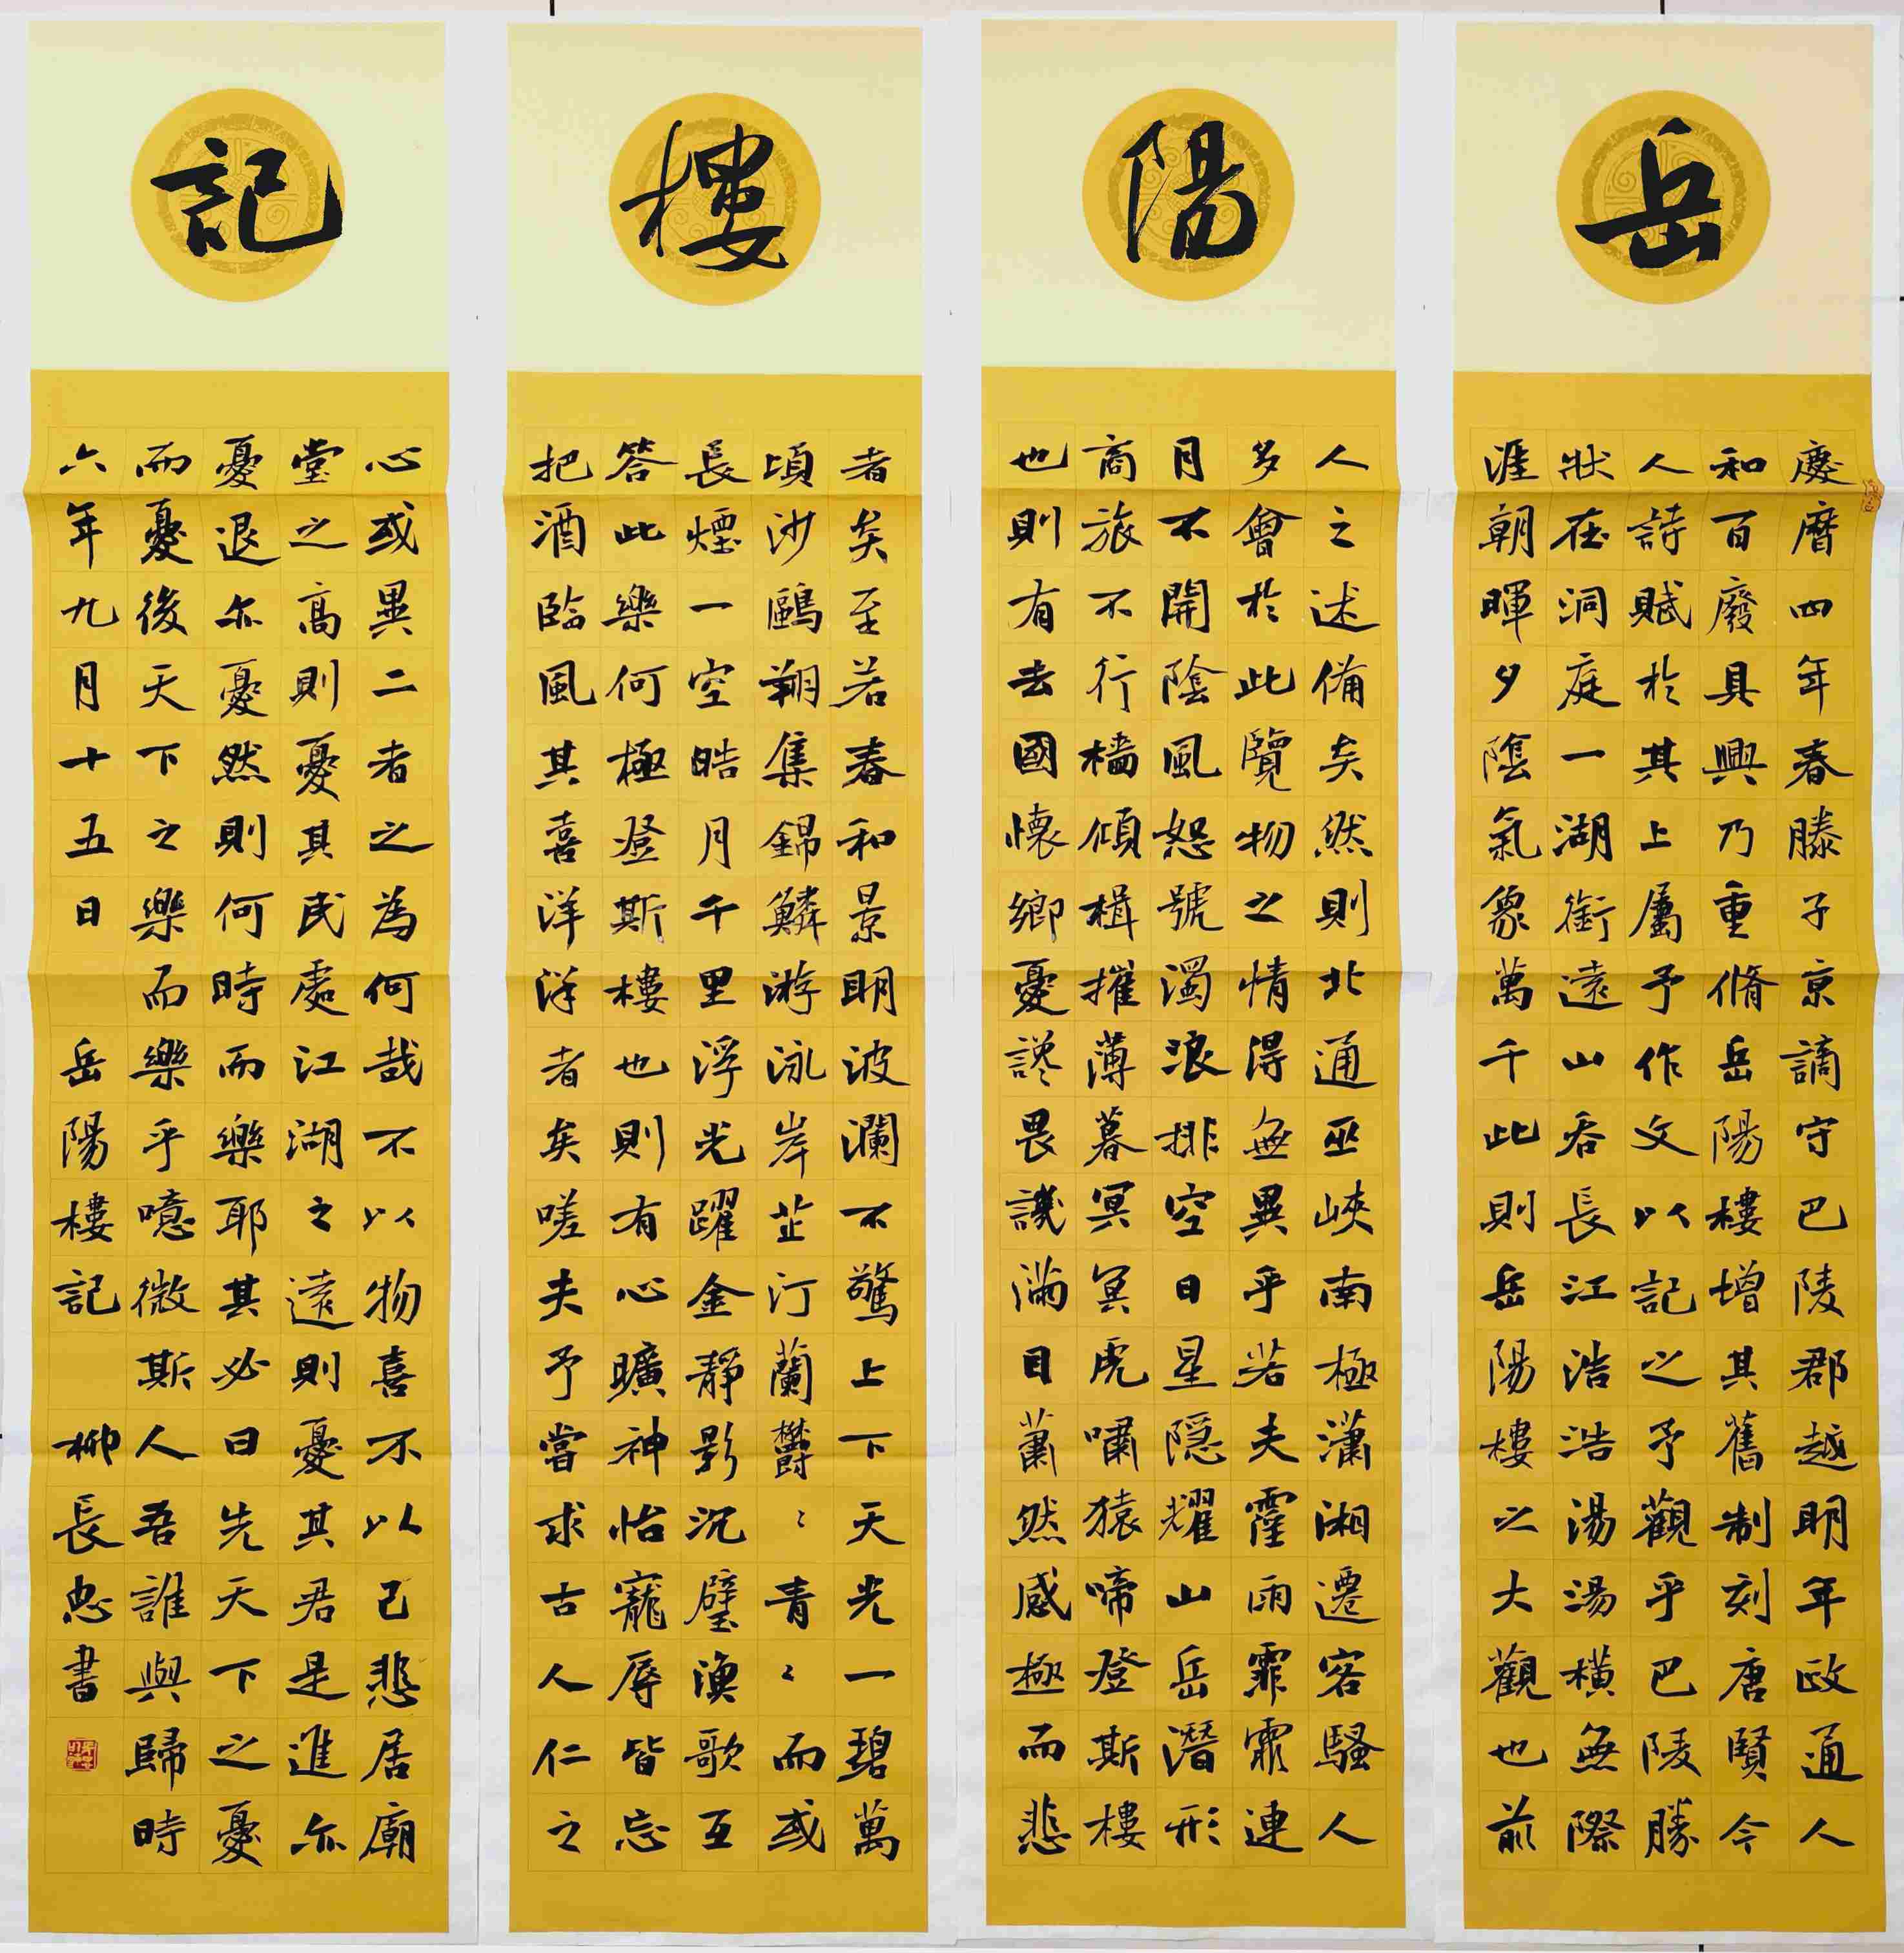 岳陽樓記
慶曆四年春滕子京謫守巴陵郡越明年政通人
和百廢具興乃重脩岳陽樓增其舊制刻唐賢今
人詩賦於其上屬予作文以記之予觀乎巴陵勝
狀在洞庭一湖銜遠山吞長江浩浩湯湯橫無際
涯朝暉夕陰氣象萬千此則岳陽樓之大觀也前
人之述備矣然則北通巫峽南極瀟湘遷客騷人
多會於此覽物之情得無異乎若夫霪雨霏霏連
月不開陰風怒號濁浪排空日星隱耀山岳潛形
商旅不行檣傾楫摧薄暮冥冥虎嘯猿啼登斯樓
也則有去國懷鄉憂讒畏譏滿目蕭然感極而悲
者矣至若春和景明波瀾不驚上下天光一碧萬
頃沙鷗翔集錦鱗游泳岸芷汀蘭鬱〻青〻而或
長煙一空皓月千里浮光躍金靜影沉璧漁歌互
答此樂何極登斯樓也則有心曠神怡寵辱皆忘
把酒臨風其喜洋洋者矣嗟夫予嘗求古人仁之
心或異二者之為何哉不以物喜不以己悲居廟
堂之高則憂其民處江湖之遠則憂其君是進亦
憂退亦憂然則何時而樂耶其必曰先天下之憂
而憂後天下之樂而樂乎噫微斯人吾誰與歸時
六年九月十五日 岳陽樓記 柳長忠書